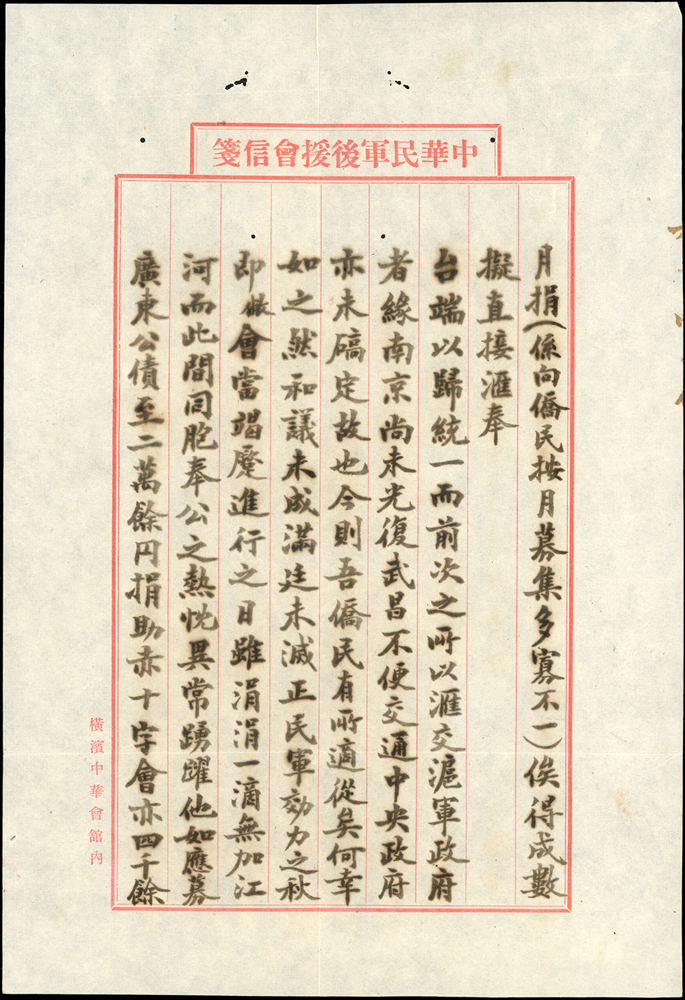 中華民軍後援會信箋
月捐(係向僑民按月募集多寡不一)俟得成數
擬直接滙奉
台端以歸統一而前次之所以滙交滬軍政府
者緣南京尚未光復武昌不便交通中央政府
亦未碻定故也今則吾僑民有所適從矣何幸
如之然和議未成滿廷未滅正民軍効力之秋
即敝會當竭蹷進行之日雖涓涓一滴無加江
河而此間同胞奉公之熱忱異常踴躍他如應募
廣東公債至二萬餘円捐助赤十字會亦四千餘
橫濱中華會館內